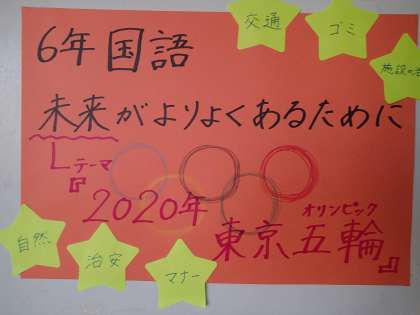 交通
ゴミ
施設の
6年国語
未来がよりよくあるために
テーマ
『2020年
オリンピック
東京五輪』
自然
治安
マナー